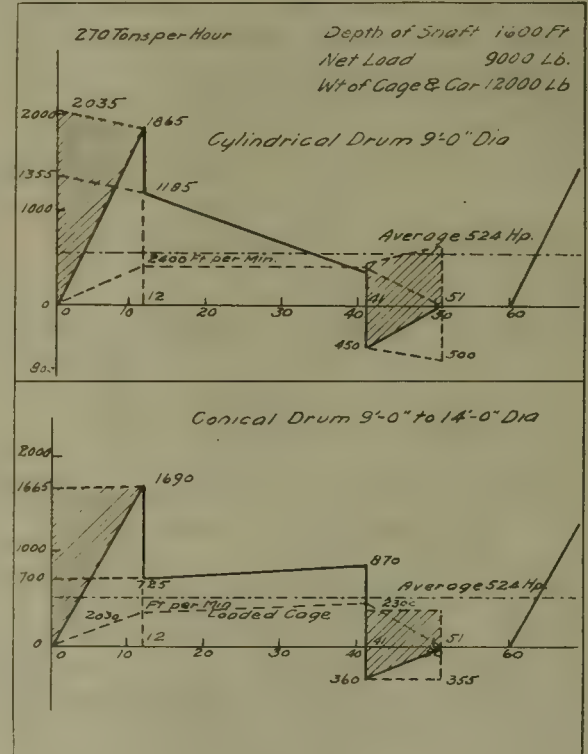 270 Tons per Hour
Depth of Shaft 1600 Ft
Net Load 9000 Lb.
Wt of Cage & Car 12000 Lb
2000
2035
1865
Cylindrical Drum 9'-0" Dia
1355
1195
1000
Average 524 Hp.
2400 Ft per Min.
0
12
41
51
0 10 20 30 50 60
450
500
Conical Drum 9'-0" to 14'-0" Dia
2000
1665
1690
1000
870
700
725
Average 524 Hp.
2030
Ft per Min
Loaded Cage
2300
0
12
41
51
0 10 20 30 60
360
355